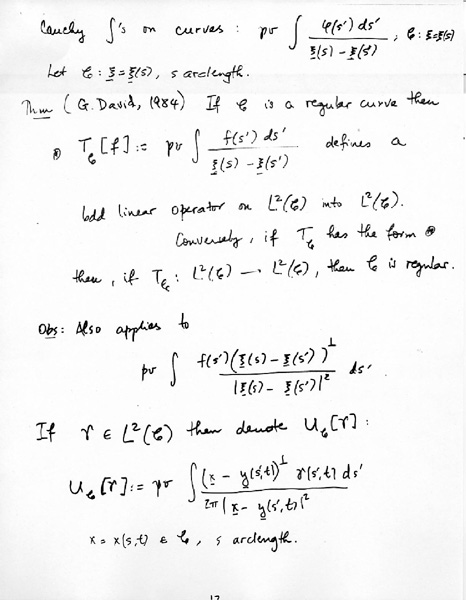 Cauchy ∫'s on curves: pv ∫ φ(s') ds' / (ξ(s) - ξ(s')) , C: ξ=ξ(s)
Let C: ξ = ξ(s), s arclength.
Thm (G. David, 1984) If C is a regular curve then
⊛ T_C [f] := pv ∫ f(s') ds' / (ξ(s) - ξ(s')) defines a
bdd linear operator on L²(C) into L²(C).
Conversely, if T_C has the form ⊛
then, if T_C : L²(C) → L²(C), then C is regular.
Obs: Also applies to
pv ∫ f(s') (ξ(s) - ξ(s'))^⊥ / |ξ(s) - ξ(s')|² ds'
If γ ∈ L²(C) then denote U_C[γ] :
U_C[γ] := pv ∫ (x - y(s',t))^⊥ γ(s',t) ds' / 2π |x - y(s',t)|²
x = x(s,t) ∈ C, s arclength.